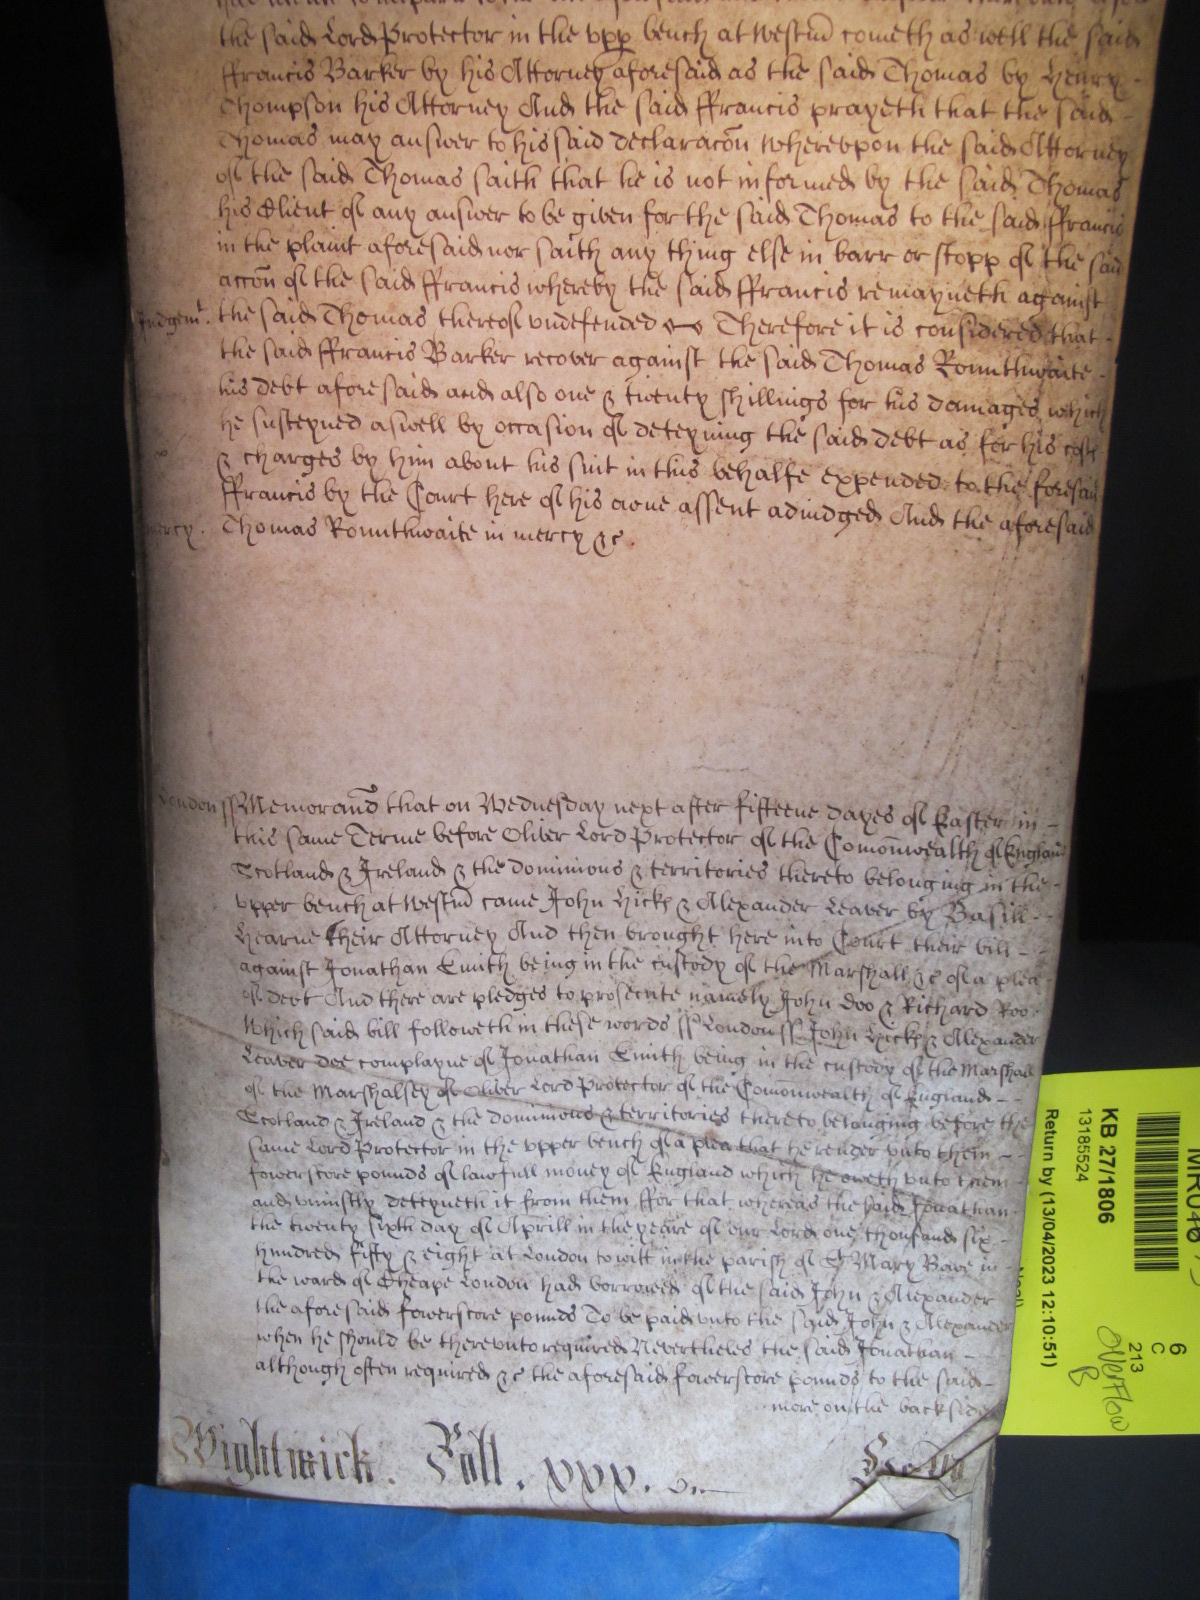 the said Lord Protector in the upp bench at Westm̄ cometh as well the said
ffrancis Barker by his Attorney aforesaid as the said Thomas by Henry
Thompson his Attorney And the said ffrancis prayeth that the said
Thomas may answer to his said declaracōn Wherevpon the said Attorney
of the said Thomas saith that he is not informed by the said Thomas
his Client of any answer to be given for the said Thomas to the said ffrancis
in the plaint aforesaid nor saith any thing else in barr or stopp of the said
accōn of the said ffrancis whereby the said ffrancis remayneth against
Judgemt. the said Thomas thereof vndefended Therefore it is considered that
the said ffrancis Barker recover against the said Thomas Rounthwaite
his debt aforesaid and also one & twenty shillings for his damages which
he susteyned aswell by occasion of deteyning the said debt as for his costs
& charges by him about his suit in this behalfe expended to the foresaid
ffrancis by the Court here of his owne assent adiudged And the aforesaid
mercy. Thomas Rounthwaite in mercy &c.
London ss Memorand̄ that on Wednesday next after fifteene dayes of Easter in
this same Terme before Oliver Lord Protector of the Com̄onwealth of England
Scotland & Ireland & the dominions & territories thereto belonging in the
vpper bench at Westm̄ came John Hicks & Alexander Leaver by Basill
Hearne their Attorney And then brought here into Court their bill
against Jonathan Smith being in the custody of the Marshall &c of a plea
of debt And there are pledges to prosecute namely John Doo & Richard Roo
Which said bill followeth in these words ss London ss John Hicks & Alexander
Leaver doe complayne of Jonathan Smith being in the custody of the Marshall
of the Marshalsey of Oliver Lord Protector of the Com̄onwealth of England
Scotland & Ireland & the dominions & territories thereto belonging before the
same Lord Protector in the vpper bench of a plea that he render vnto them
fowerscore pounds of lawfull money of England which he oweth vnto them
and vniustly deteyneth it from them ffor that whereas the said Jonathan
the twenty sixth day of Aprill in the yeare of our Lord one thousand six
hundred fifty & eight at London to witt in the parish of St Mary Bowe in
the ward of Cheape London had borrowed of the said John & Alexander
the aforesaid fowerscore pounds To be paid vnto the said John & Alexander
when he should be therevnto required Nevertheles the said Jonathan
although often required &c the aforesaid fowerscore pounds to the said
more on the backside
Wightwick. Roll. xxx.
KB 27/1806
13185524
Return by (13/04/2023 12:10:51)
6
C
213
Overflow
B